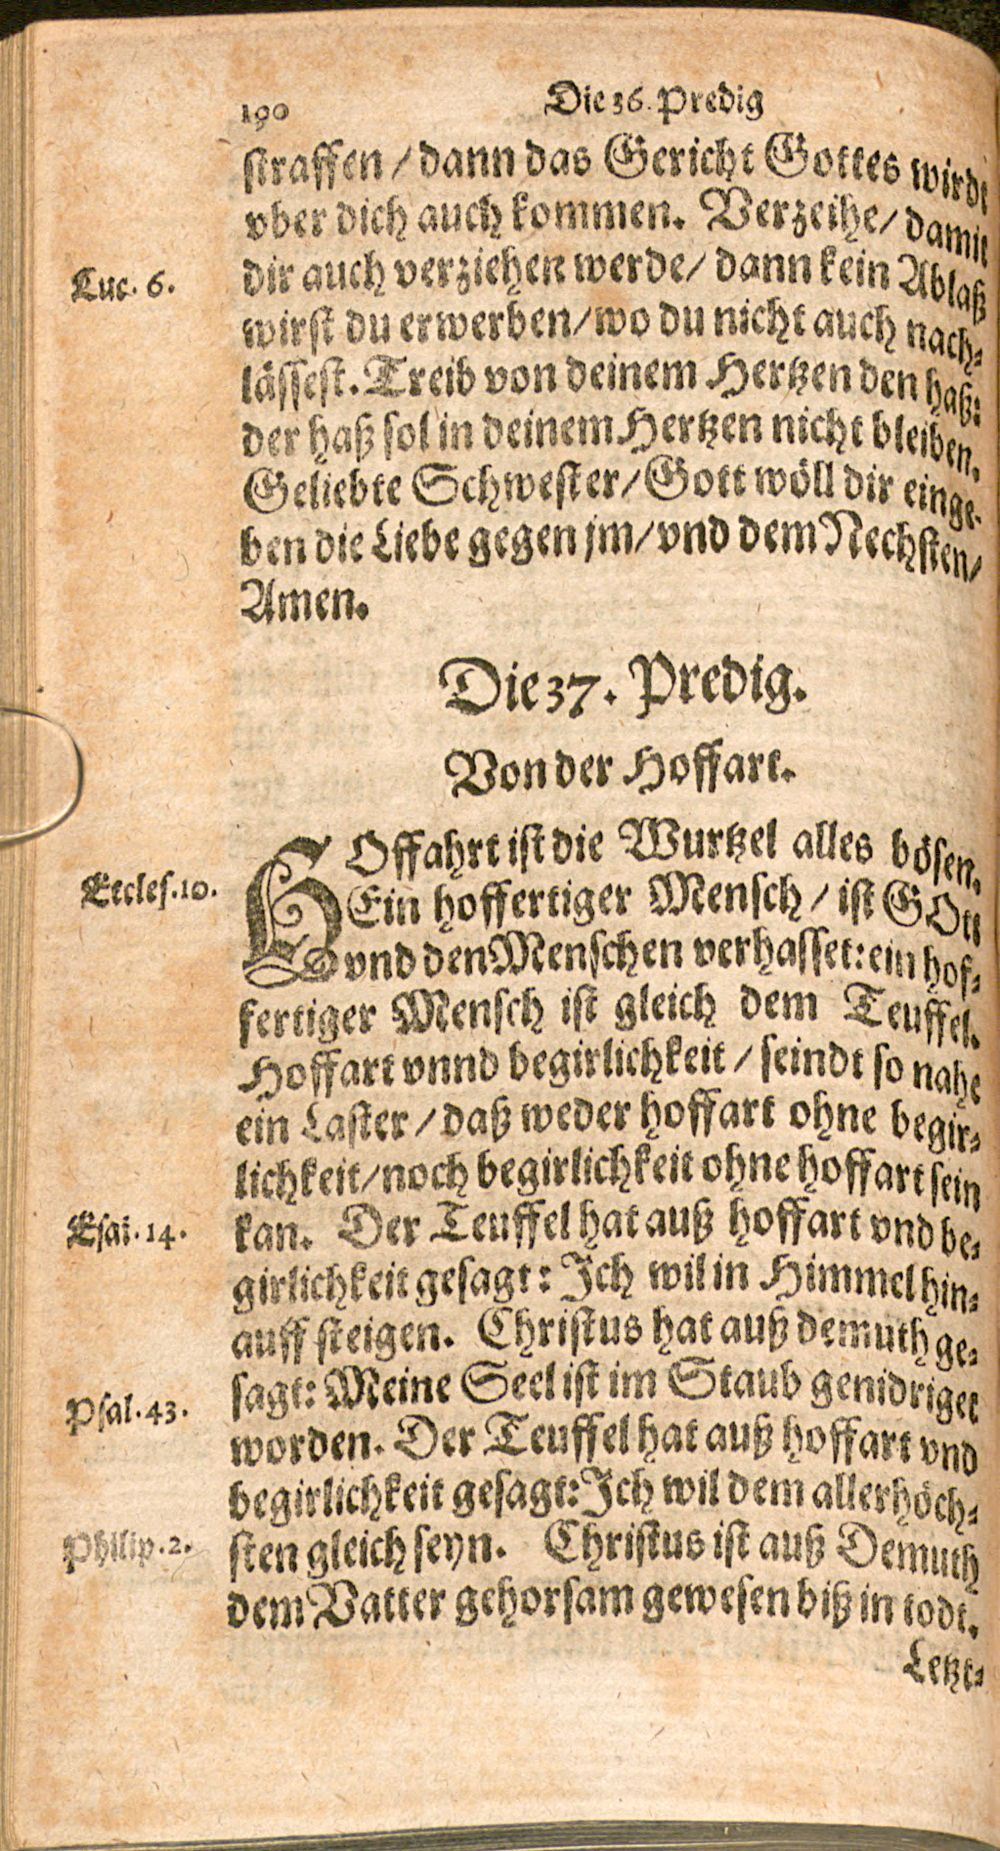 190 Die 36. Predig
straffen / dann das Gericht Gottes wirdt
vber dich auch kommen. Verzeihe / damit
Luc. 6.
dir auch verziehen werde / dann kein Ablaß
wirst du erwerben / wo du nicht auch nach-
lässest. Treib von deinem Hertzen den haß:
der haß sol in deinem Hertzen nicht bleiben.
Geliebte Schwester / Gott wöll dir einge-
ben die Liebe gegen jm / vnd dem Nechsten /
Amen.
Die 37. Predig.
Von der Hoffart.
HOffahrt ist die Wurtzel alles bösen.
Eccles. 10.
Ein hoffertiger Mensch / ist GOtt
vnd den Menschen verhasset: ein hof-
fertiger Mensch ist gleich dem Teuffel.
Hoffart vnnd begirlichkeit / seindt so nahe
ein Laster / daß weder hoffart ohne begir-
lichkeit / noch begirlichkeit ohne hoffart sein
Esai. 14.
kan. Der Teuffel hat auß hoffart vnd be-
girlichkeit gesagt: Ich wil in Himmel hin-
auff steigen. Christus hat auß demuth ge-
sagt: Meine Seel ist im Staub genidriget
Psal. 43.
worden. Der Teuffel hat auß hoffart vnd
begirlichkeit gesagt: Ich wil dem allerhöch-
Philip. 2.
sten gleich seyn. Christus ist auß Demuth
dem Vatter gehorsam gewesen biß in todt.
Letzt-